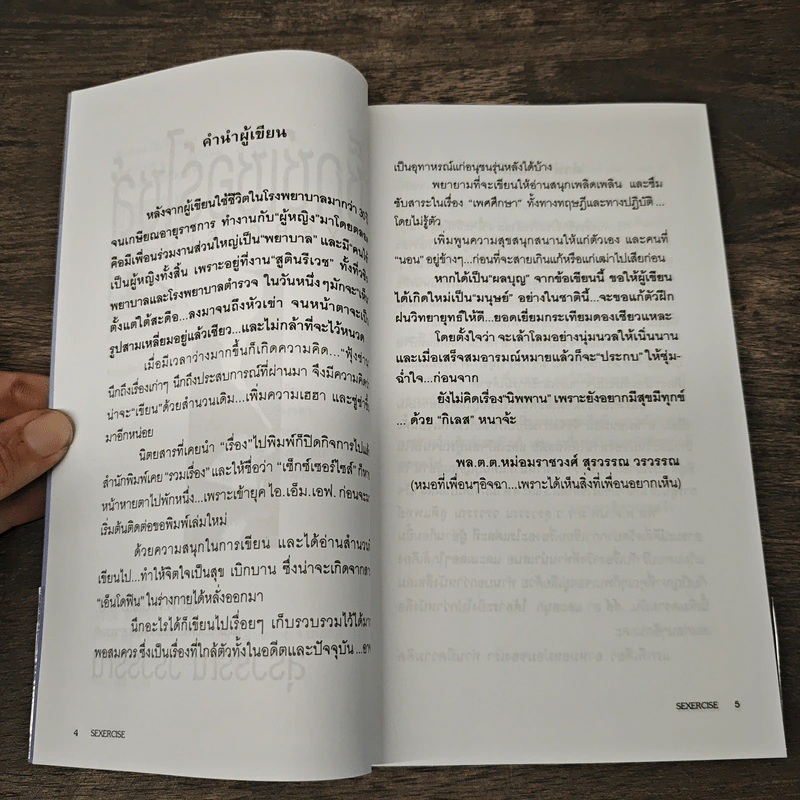 คำนำผู้เขียน
หลังจากผู้เขียนใช้ชีวิตในโรงพยาบาลมากว่า 30 ปี
จนเกษียณอายุราชการ ทำงานกับ"ผู้หญิง"มาโดยตลอด
คือมีเพื่อนร่วมงานส่วนใหญ่เป็น"พยาบาล" และมี"คนไข้
เป็นผู้หญิงทั้งสิ้น เพราะอยู่ที่งาน"สูตินรีเวช" ทั้งที่วชิร
พยาบาลและโรงพยาบาลตำรวจ ในวันหนึ่งๆมักจะ
ตั้งแต่ใต้สะดือ...ลงมาจนถึงหัวเข่า จนหน้าตาจะเป็น
รูปสามเหลี่ยมอยู่แล้วเชียว...และไม่กล้าที่จะไว้หนวด
เมื่อมีเวลาว่างมากขึ้นก็เกิดความคิด..."ฟุ้งซ่าน
นึกถึงเรื่องเก่าๆ นึกถึงประสบการณ์ที่ผ่านมา จึงมีความคิดว่า
น่าจะ"เขียน"ด้วยสำนวนเดิม...เพิ่มความเฮฮา และ
มาอีกหน่อย
นิตยสารที่เคยนำ "เรื่อง"ไปพิมพ์ก็ปิดกิจการไปแล้ว
สำนักพิมพ์เคย "รวมเรื่อง" และให้ชื่อว่า "เซ็กซ์เซอร์ไซส์" ก็หา
หน้าหายตาไปพักหนึ่ง...เพราะเข้ายุค ไอ.เอ็ม.เอฟ. ก่อนจะมา
เริ่มต้นติดต่อขอพิมพ์เล่มใหม่
ด้วยความสนุกในการเขียน และได้อ่านสำนวนที่
เขียนไป...ทำให้จิตใจเป็นสุข เบิกบาน ซึ่งน่าจะเกิดจากสาร
"เอ็นโดฟิน"ในร่างกายได้หลั่งออกมา
นึกอะไรได้ก็เขียนไปเรื่อยๆ เก็บรวบรวมไว้ได้มาก
พอสมควร ซึ่งเป็นเรื่องที่ใกล้ตัวทั้งในอดีตและปัจจุบัน ...อาจ
4 SEXERCISE
เป็นอุทาหรณ์แก่อนุชนรุ่นหลังได้บ้าง
พยายามที่จะเขียนให้อ่านสนุกเพลิดเพลิน และซึม
ซับสาระในเรื่อง "เพศศึกษา" ทั้งทางทฤษฎีและทางปฏิบัติ...
โดยไม่รู้ตัว
เพิ่มพูนความสุขสนุกสนานให้แก่ตัวเอง และคนที่
"นอน" อยู่ข้างๆ...ก่อนที่จะสายเกินแก้หรือแก่เฒ่าไปเสียก่อน
หากได้เป็น"ผลบุญ" จากข้อเขียนนี้ ขอให้ผู้เขียน
ได้เกิดใหม่เป็น"มนุษย์" อย่างในชาตินี้...จะขอแก้ตัวฝึก
ฝนวิทยายุทธ์ให้ดี...ยอดเยี่ยมกระเทียมดองเชียวแหละ
โดยตั้งใจว่า จะเล้าโลมอย่างนุ่มนวลให้เนิ่นนาน
และเมื่อเสร็จสมอารมณ์หมายแล้วก็จะ"ประกบ" ให้ชุ่ม-
ฉ่ำใจ...ก่อนจาก
ยังไม่คิดเรื่อง"นิพพาน" เพราะยังอยากมีสุขมีทุกข์
... ด้วย "กิเลส" หนาจ้ะ
พล.ต.ต.หม่อมราชวงศ์ สุรวรรณ วรวรรณ
(หมอที่เพื่อนๆอิจฉา...เพราะได้เห็นสิ่งที่เพื่อนอยากเห็น)
SEXERCISE 5